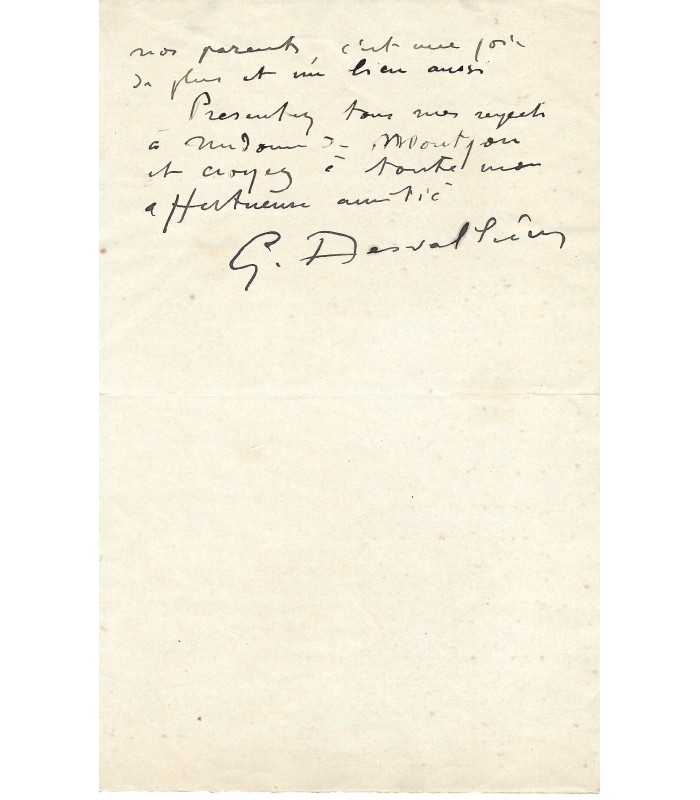 nos parents, c'est une joie
de plus et un lien aussi
Presentez tous mes respects
à madame de Montjou
et croyez à toute mon
affectueuse amitié
G. Desvallières